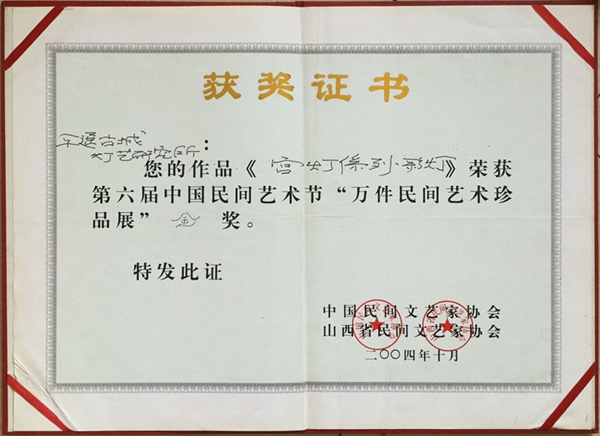 获奖证书
平遥古城
灯艺研究所：
您的作品《宫灯系列彩灯》荣获
第六届中国民间艺术节“万件民间艺术珍
品展” 金 奖。
特发此证
中国民间文艺家协会
山西省民间文艺家协会
二〇〇四年十月